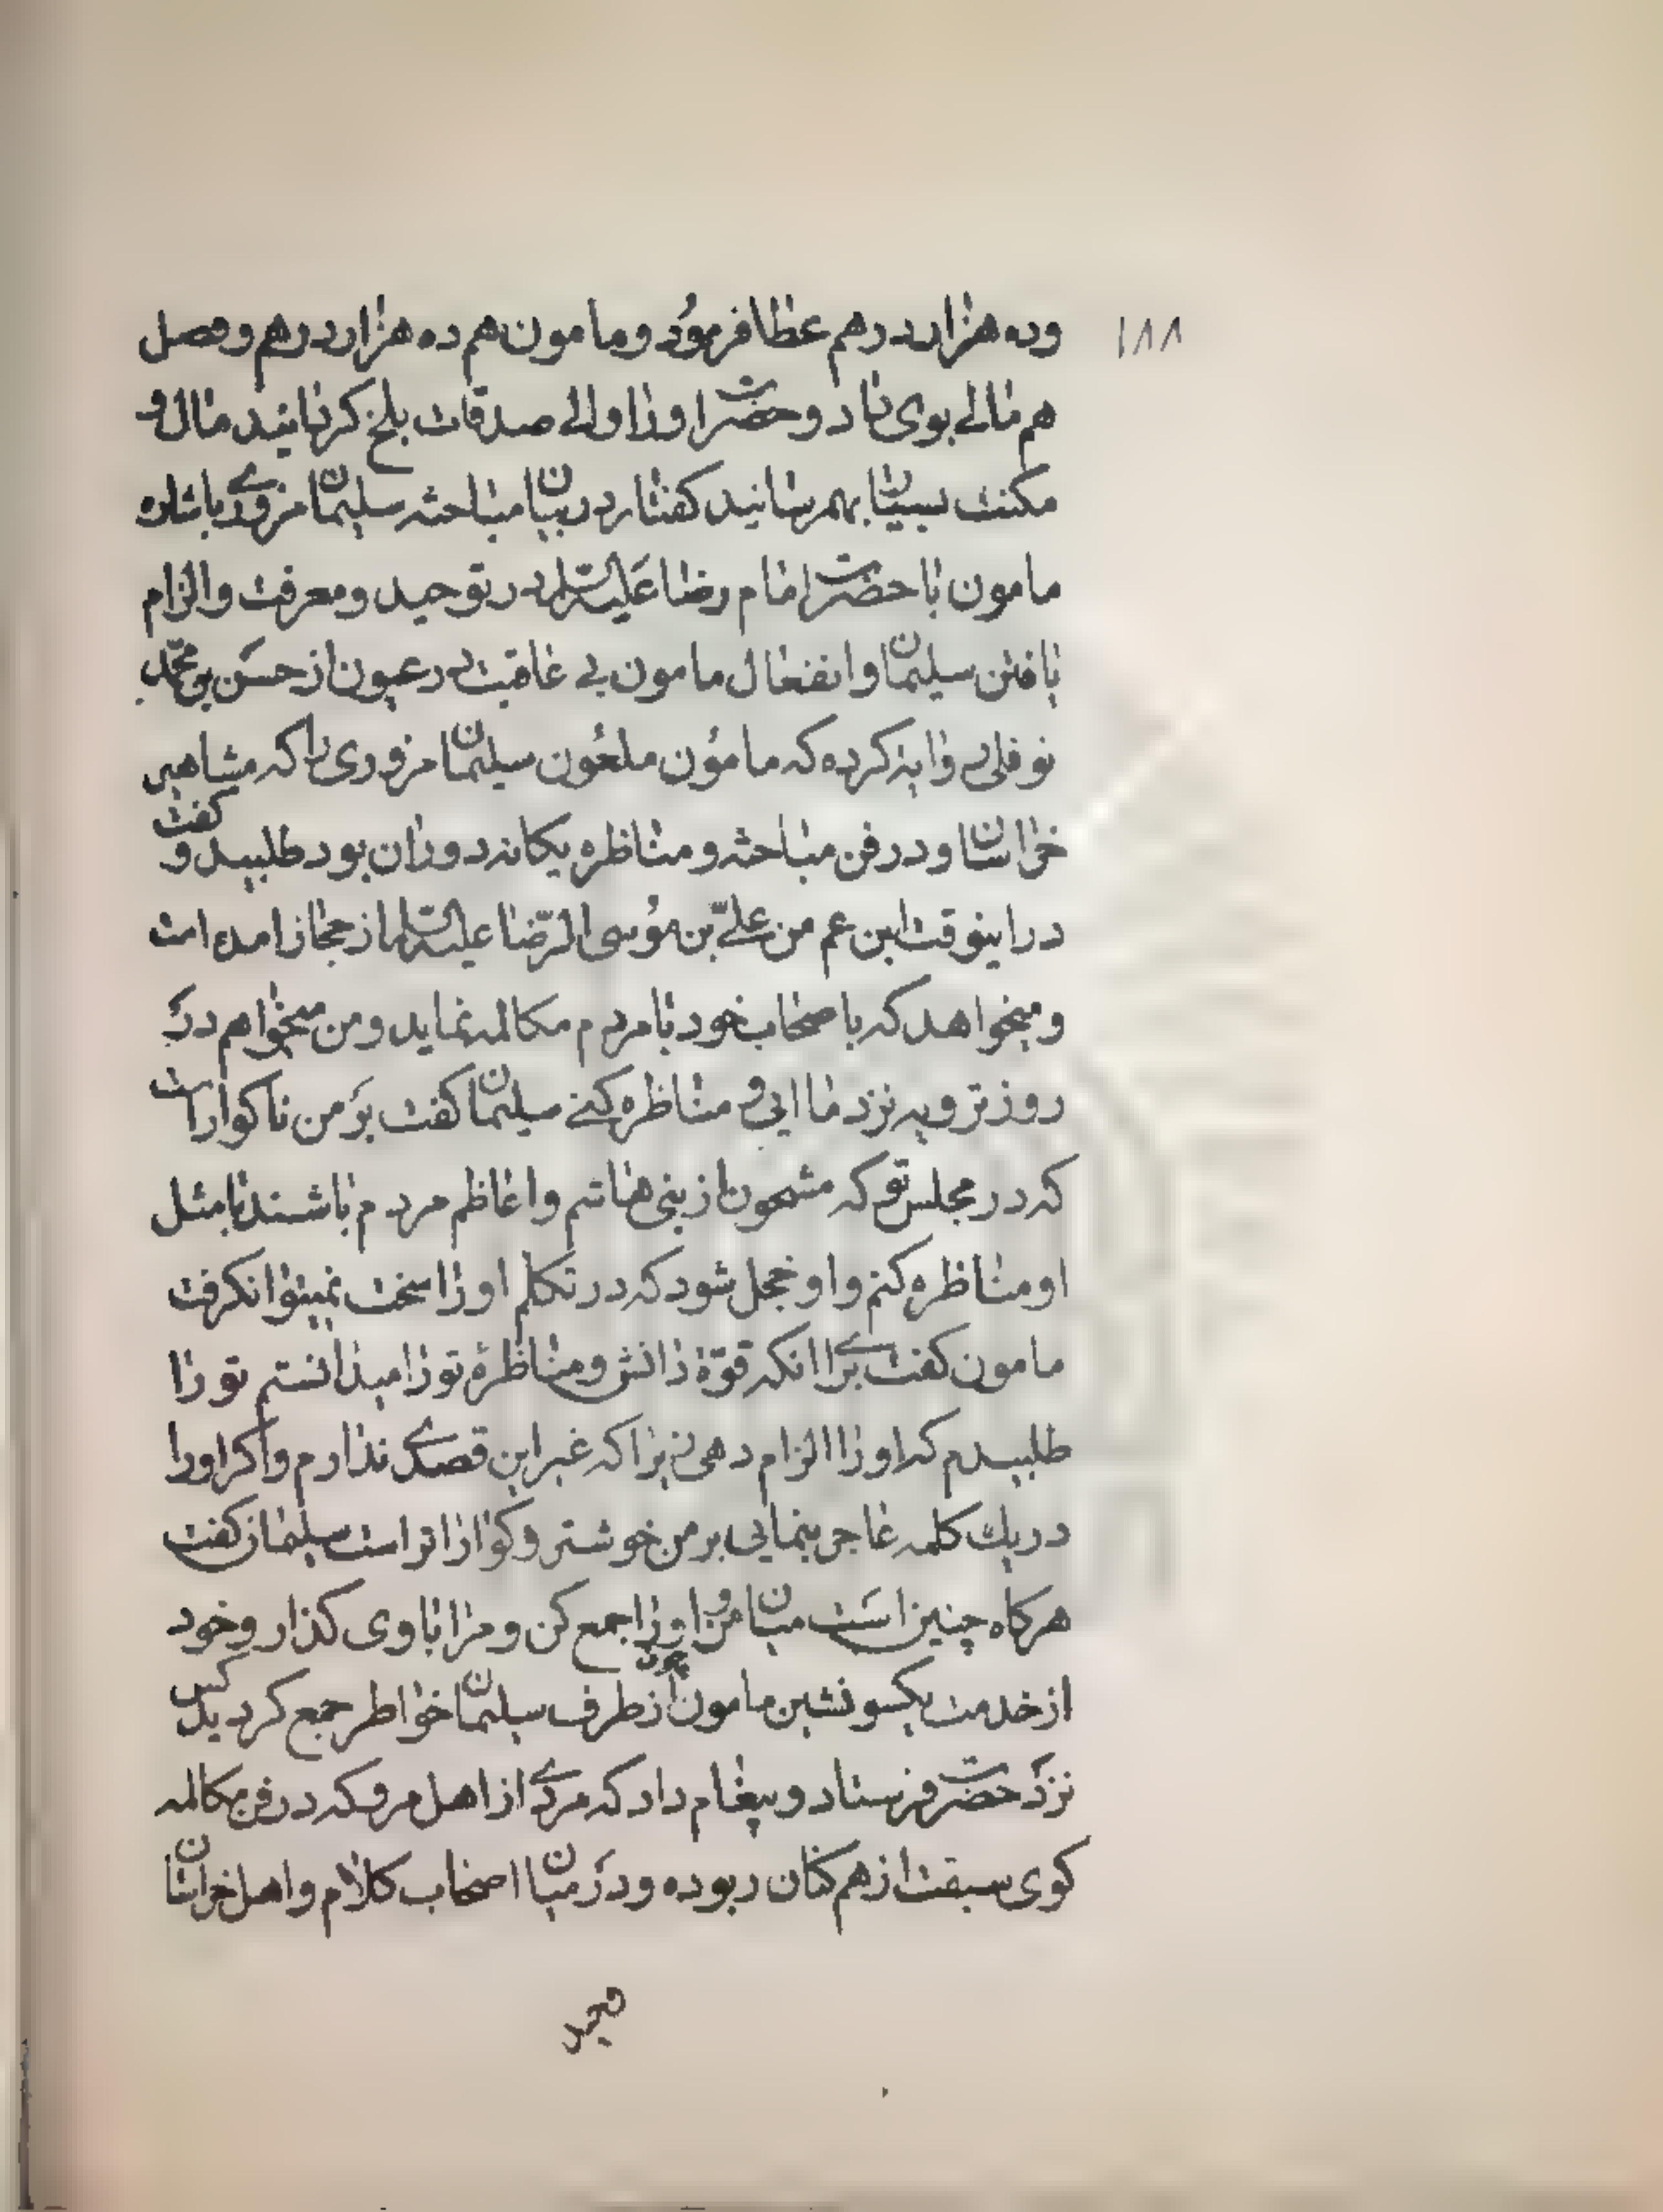 ١٨٨
وده هزار درهم عطا فرمود و مامون هم ده هزار درهم و فضل
هم مالی بوی داد و حضرت او را والی صدقات بلخ کردانید مال و
مکنت بسیار بهم رسانید کفتار در بیان مباحثه سلیمان مروزی باشاره
مامون با حضرت امام رضا علیه السلام در توحید و معرفت و الزام
یافتن سلیمان و انفعال مامون بی عاقبت در عیون از حسن بن محمد
نوفلی روایه کرده که مامون ملعون سلیمان مروزی را که مشاهیر
خراسان و در فن مباحثه و مناظره یکانه دوران بود طلبید و کفت
در اینوقت ابن عم من علی بن موسی الرضا علیه السلام از حجاز امده است
و میخواهد که با اصحاب خود با مردم مکالمه نماید و من میخواهم در
روز ترویه نزد ما ایی و مناظره کنی سلیمان کفت بر من ناکوار است
که در مجلس تو که مشحون از بنی هاشم و اعاظم مردم باشند با مثل
او مناظره کنم و او خجل شود که در تکلم او را سخت نمیتوان کرفت
مامون کفت برای انکه قوّة دانش و مناظرهٔ تو را میدانستم تو را
طلبیدم که او را الزام دهی زیرا که غیر این قصدی ندارم و اکر او را
در یك کلمه عاجز بنمایی بر من خوشتر و کواراتر است سلیمان کفت
هرکاه چنین است میان من و او را جمع کن و مرا با وی کذار و خود
از خدمت یکسو نشین مامون چون از طرف سلیمان خواطر جمع کردید کس
نزد حضرت فرستاد و پیغام داد که مردی از اهل مرو که در فن مکالمه
کوی سبقت از همکنان ربوده و در میان اصحاب کلام و اهل خراسان